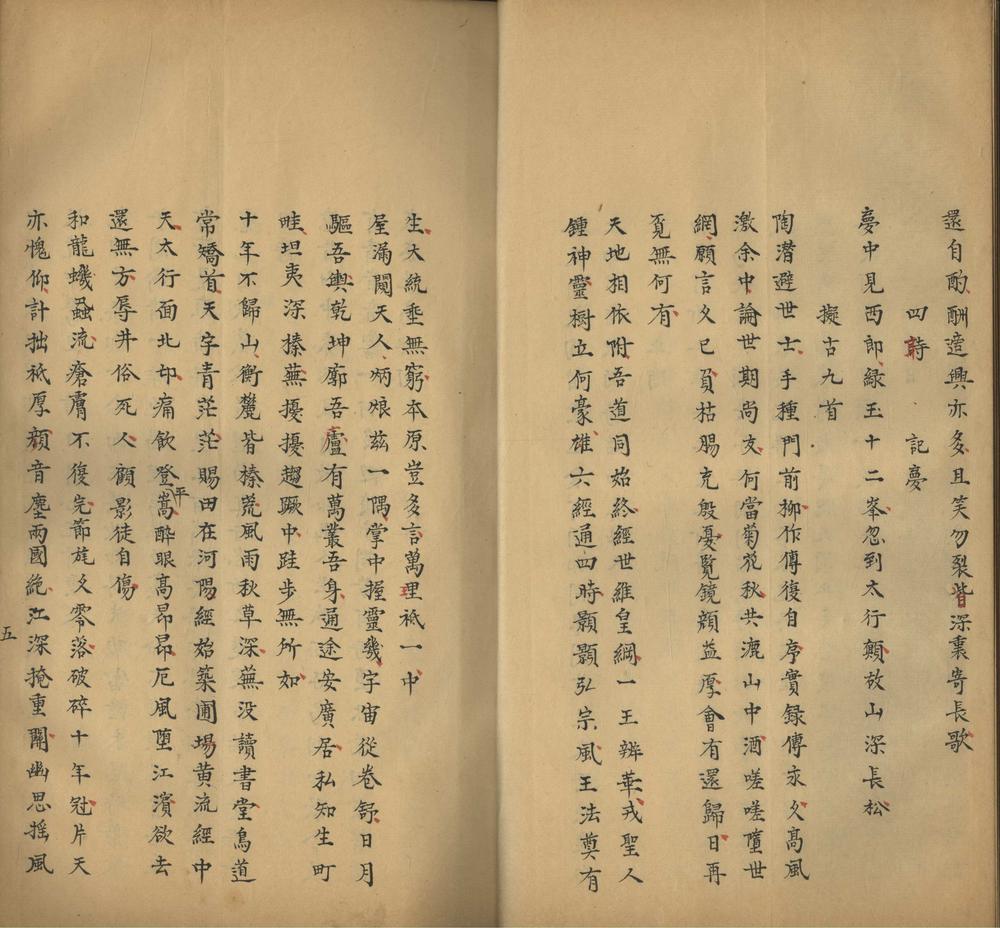 還自酌酬造興亦多且笑勿裂眥深裏寄長歌
四詩　記夢
夢中見西郎綠玉十二峯忽到太行顛故山深長松
擬古九首
陶潛避世士手種門前柳作傳復自序實録傳永久高風
激余中論世期尚友何當菊花秋共漉山中酒嗟嗟墮世
網願言久已負枯腸充殷憂覧鏡顔益厚會有還歸日再
覓無何有
天地相依附吾道同始終經世維皇綱一王辨華戎聖人
鍾神靈樹立何豪雄六經通四時顥顥弘宗風王法奠有
生大統垂無窮本原豈多言萬理祗一中
屋漏閱天人炳烺茲一隅掌中握靈幾宇宙從卷舒日月
驅吾輿乾坤廓吾廬有萬叢吾身通途安廣居私知生町
畦坦夷深榛蕪擾擾趨蹶中跬步無所如
十年不歸山衡麓皆榛荒風雨秋草深蕪没讀書堂鳥道
常矯首天字青茫茫賜田在河陽經始築圃場黄流經中
天太行面北邙痛飲登平嵩醉眼高昂昂厄風墮江濱欲去
還無方辱井俗死人顧影徒自傷
和龍蟣蝨流瘡膚不復完節旄久零落破碎十年冠片天
亦愧仰計拙祗厚顔音塵兩國絶江深掩重關幽思摇風
五